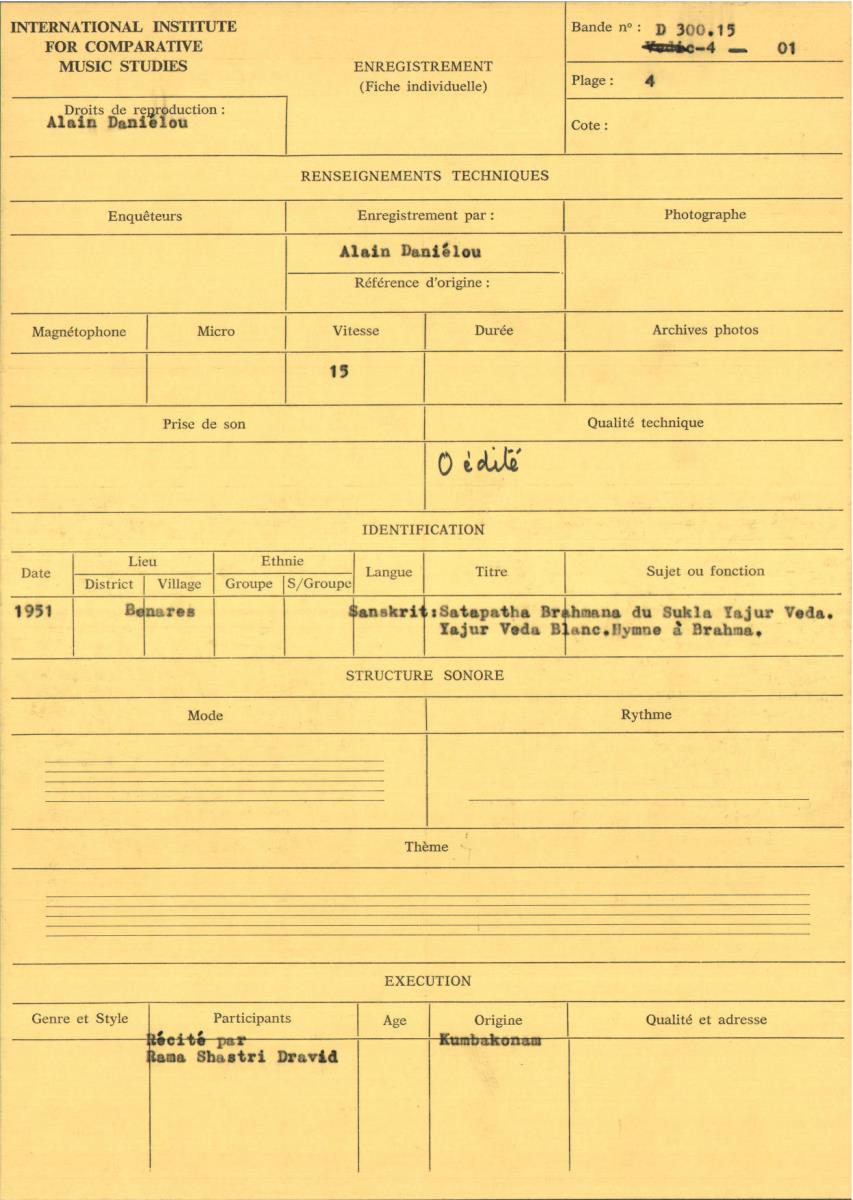 INTERNATIONAL INSTITUTE
FOR COMPARATIVE
MUSIC STUDIES
Droits de reproduction :
Alain Daniélou
ENREGISTREMENT
(Fiche individuelle)
Bande nº : D 300.15
Vedic-4 — 01
Plage : 4
Cote :
RENSEIGNEMENTS TECHNIQUES
Enquêteurs
Enregistrement par :
Photographe
Alain Daniélou
Référence d'origine :
Magnétophone
Micro
Vitesse
Durée
Archives photos
15
Prise de son
Qualité technique
O édité
IDENTIFICATION
Date
Lieu
Ethnie
Langue
Titre
Sujet ou fonction
District
Village
Groupe
S/Groupe
1951
Benares
Sanskrit:Satapatha Brahmana du Sukla Yajur Veda.
Yajur Veda Blanc.Hymne à Brahma.
STRUCTURE SONORE
Mode
Rythme
Thème
EXECUTION
Genre et Style
Participants
Age
Origine
Qualité et adresse
Récité par
Rama Shastri Dravid
Kumbakonam